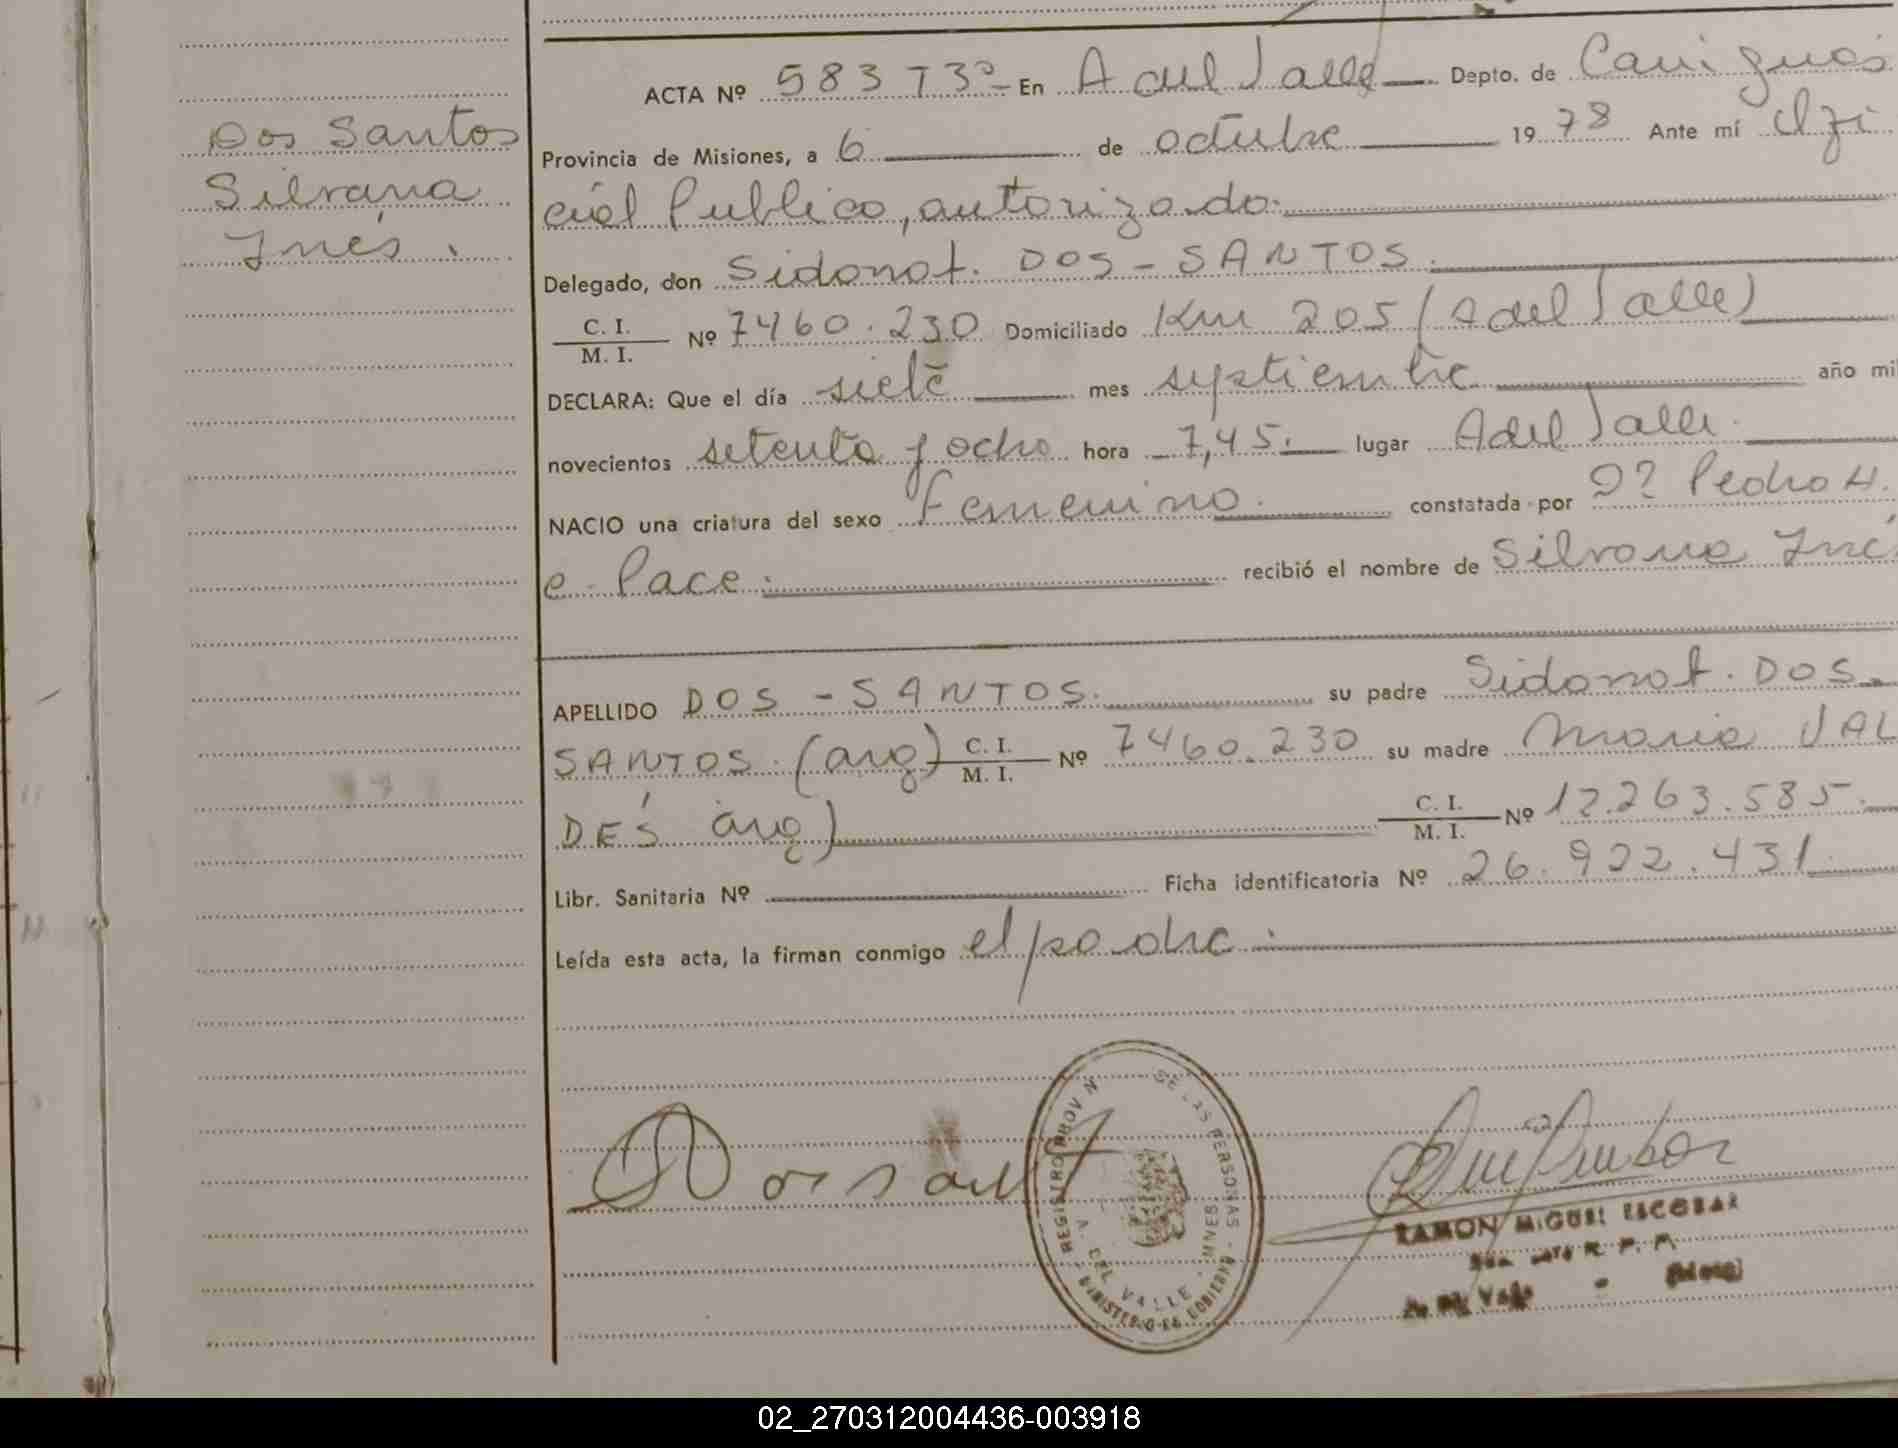 Dos Santos
Silvana
Inés.
ACTA Nº 583 T3º En A del Valle Depto. de Cainguás
Provincia de Misiones, a 6 de octubre 1978 Ante mí Ofi
cial Publico, autorizado.
Delegado, don Sidonot. DOS-SANTOS.
C. I.
M. I. Nº 7460.230 Domiciliado Km 205 (A del Valle)
DECLARA: Que el día siete mes septiembre año mil
novecientos setenta y ocho hora 7,45. lugar A del Valle.
NACIO una criatura del sexo Femenino. constatada por Dº Pedro H.
e. Pace. recibió el nombre de Silvana Inés
APELLIDO DOS-SANTOS. su padre Sidonot. DOS-
SANTOS. (arg) C. I.
M. I. Nº 7460.230 su madre Maria VAL
DÉS arg) C. I.
M. I. Nº 12.263.585.
Libr. Sanitaria Nº Ficha identificatoria Nº 26.922.431.
Leída esta acta, la firman conmigo el padre.
REGISTRO PROV DE LAS PERSONAS
A. DEL VALLE - MNES
MINISTERIO DE GOBIERNO
RAMON MIGUEL ESCOBAR
A. del Valle
02_270312004436-003918